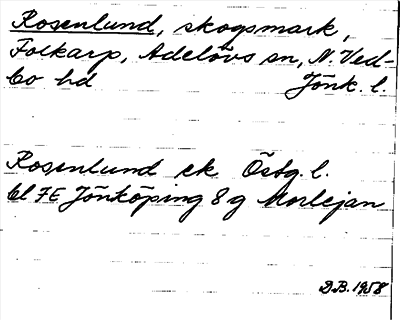 Rosenlund, skogsmark,
Folkarp, Adelövs sn, N. Ved-
bo hd Jönk. l.
Rosenlund ek Östg. l.
bl 7E Jönköping 8g Morlejan
D.B. 1958